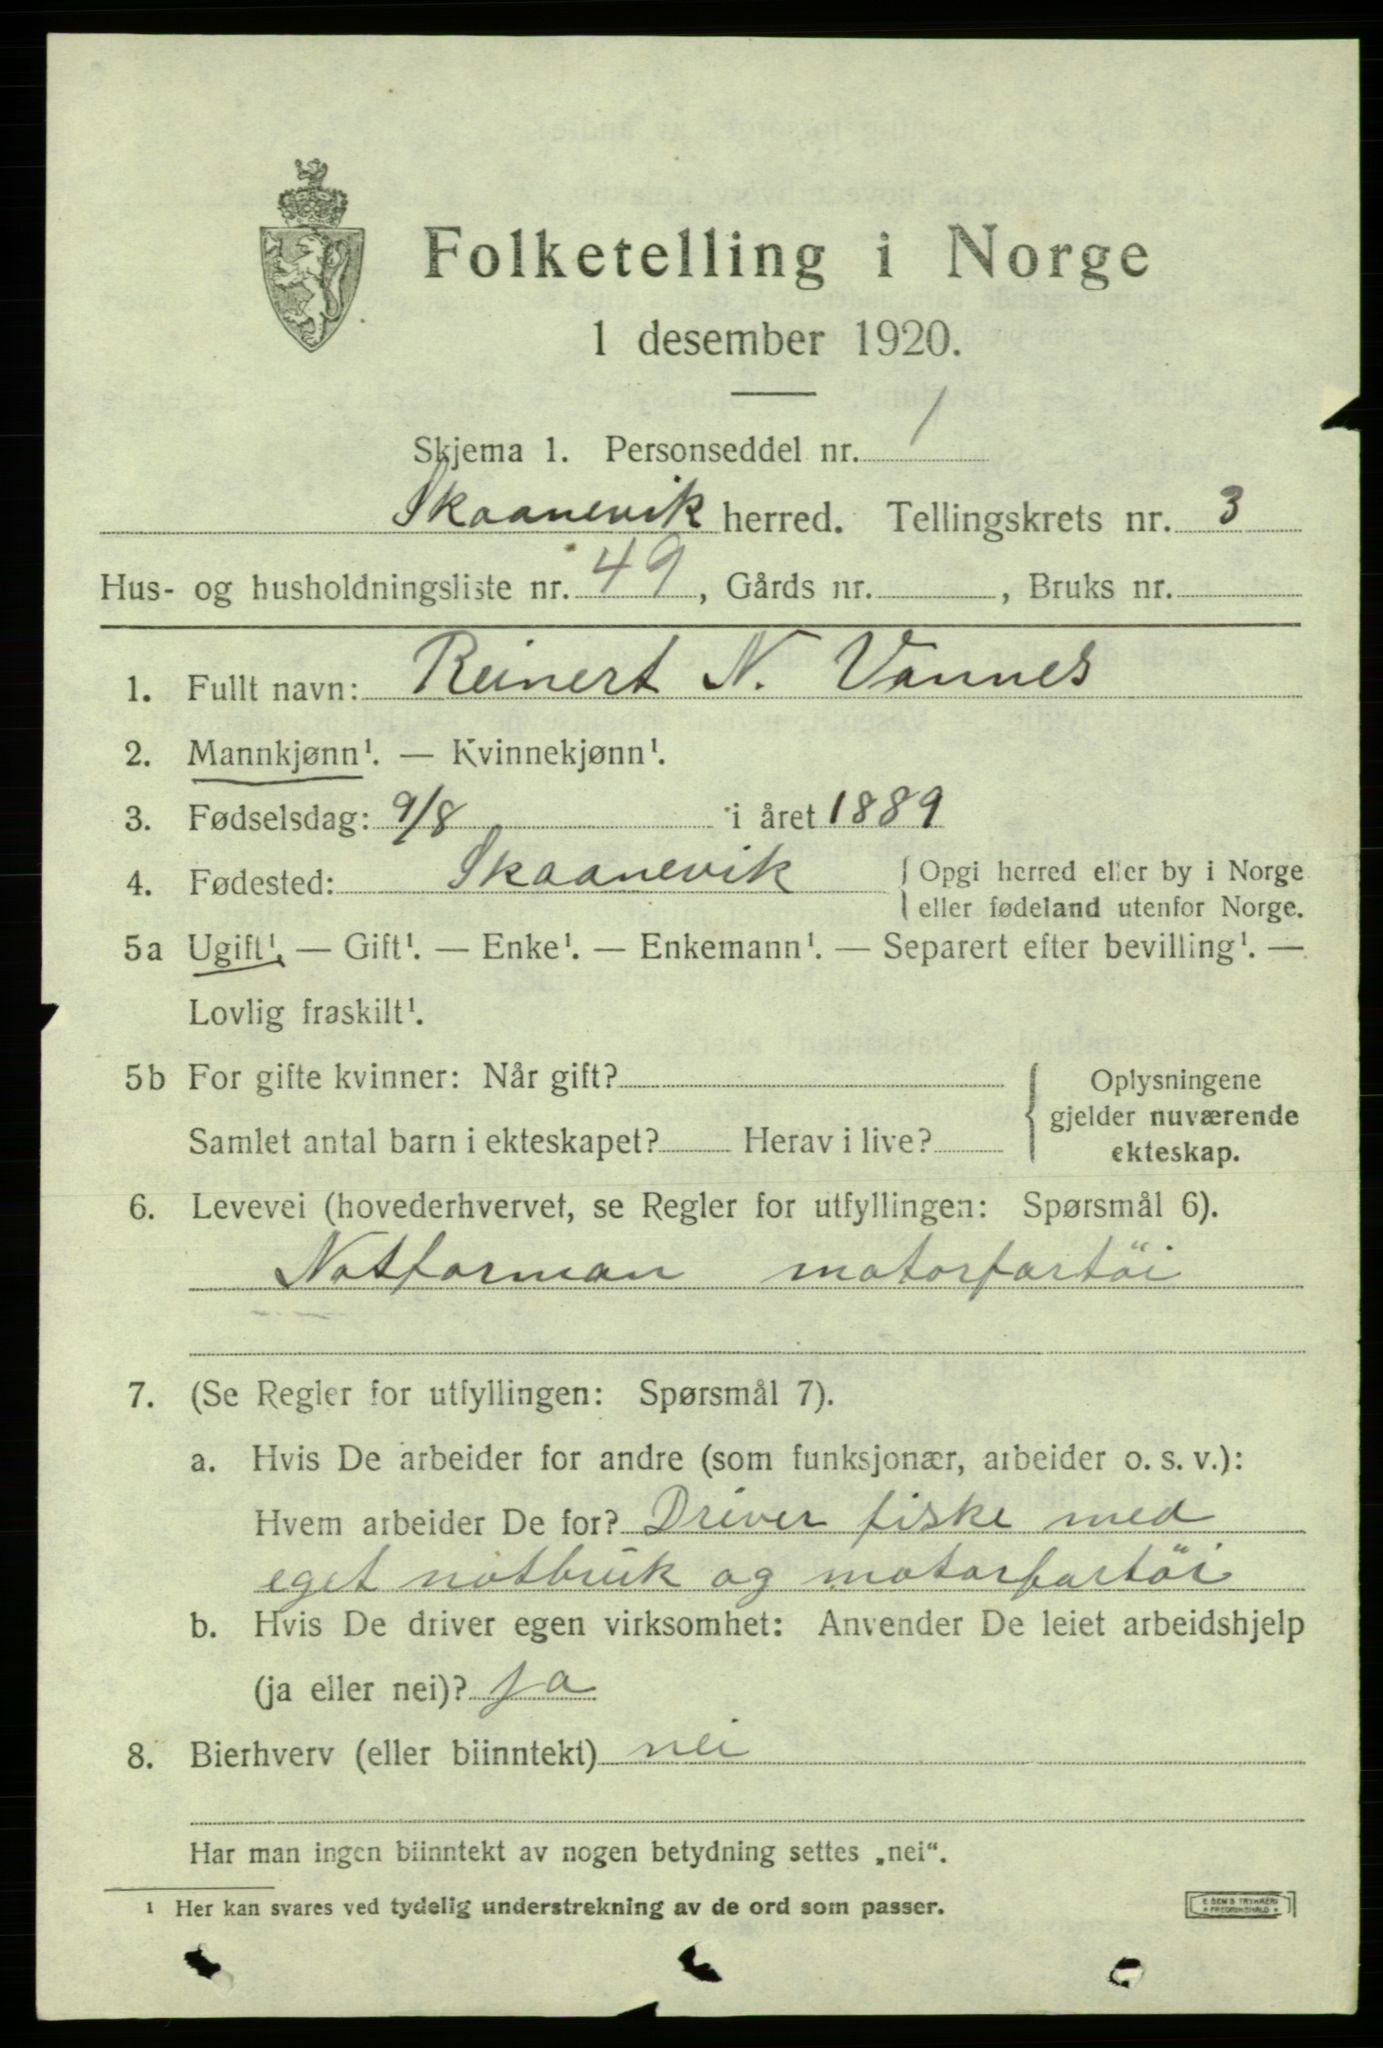 Folketelling i Norge
1 desember 1920.
Skjema 1. Personseddel nr. 1
Skaanevik herred. Tellingskrets nr. 3
Hus- og husholdningsliste nr. 49, Gårds nr. , Bruks nr.
1. Fullt navn: Reinert N. Vannes
2. Mannkjønn¹. — Kvinnekjønn¹.
3. Fødselsdag: 9/8 i året 1889
4. Fødested: Skaanevik { Opgi herred eller by i Norge
eller fødeland utenfor Norge.
5a Ugift¹. — Gift¹. — Enke¹. — Enkemann¹. — Separert efter bevilling¹. —
Lovlig fraskilt¹.
5b For gifte kvinner: Når gift? { Oplysningene
gjelder nuværende
Samlet antal barn i ekteskapet? Herav i live?
ekteskap.
6. Levevei (hovederhvervet, se Regler for utfyllingen: Spørsmål 6).
Notforman motorfartöi
7. (Se Regler for utfyllingen: Spørsmål 7).
a. Hvis De arbeider for andre (som funksjonær, arbeider o. s. v.):
Hvem arbeider De for? Driver fiske med
eget notbruk og motorfartöi
b. Hvis De driver egen virksomhet: Anvender De leiet arbeidshjelp
(ja eller nei)? ja
8. Bierhverv (eller biinntekt) nei
Har man ingen biinntekt av nogen betydning settes „nei“.
¹ Her kan svares ved tydelig understrekning av de ord som passer.